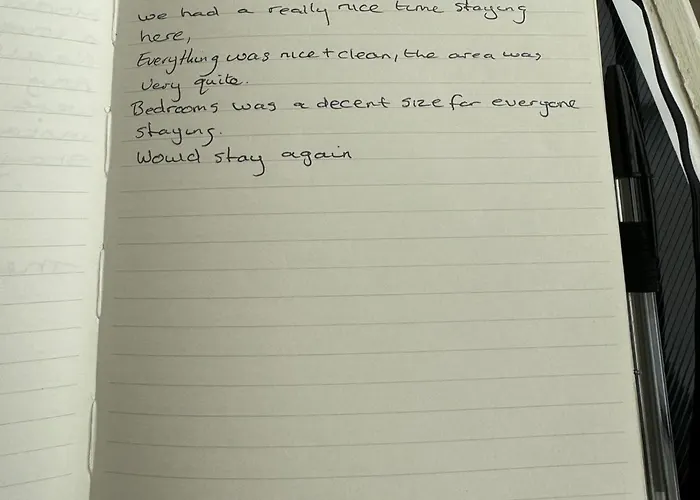 we had a really nice time staying
here,
Everything was nice + clean, the area was
very quite.
Bedrooms was a decent size for everyone
staying.
Would stay again